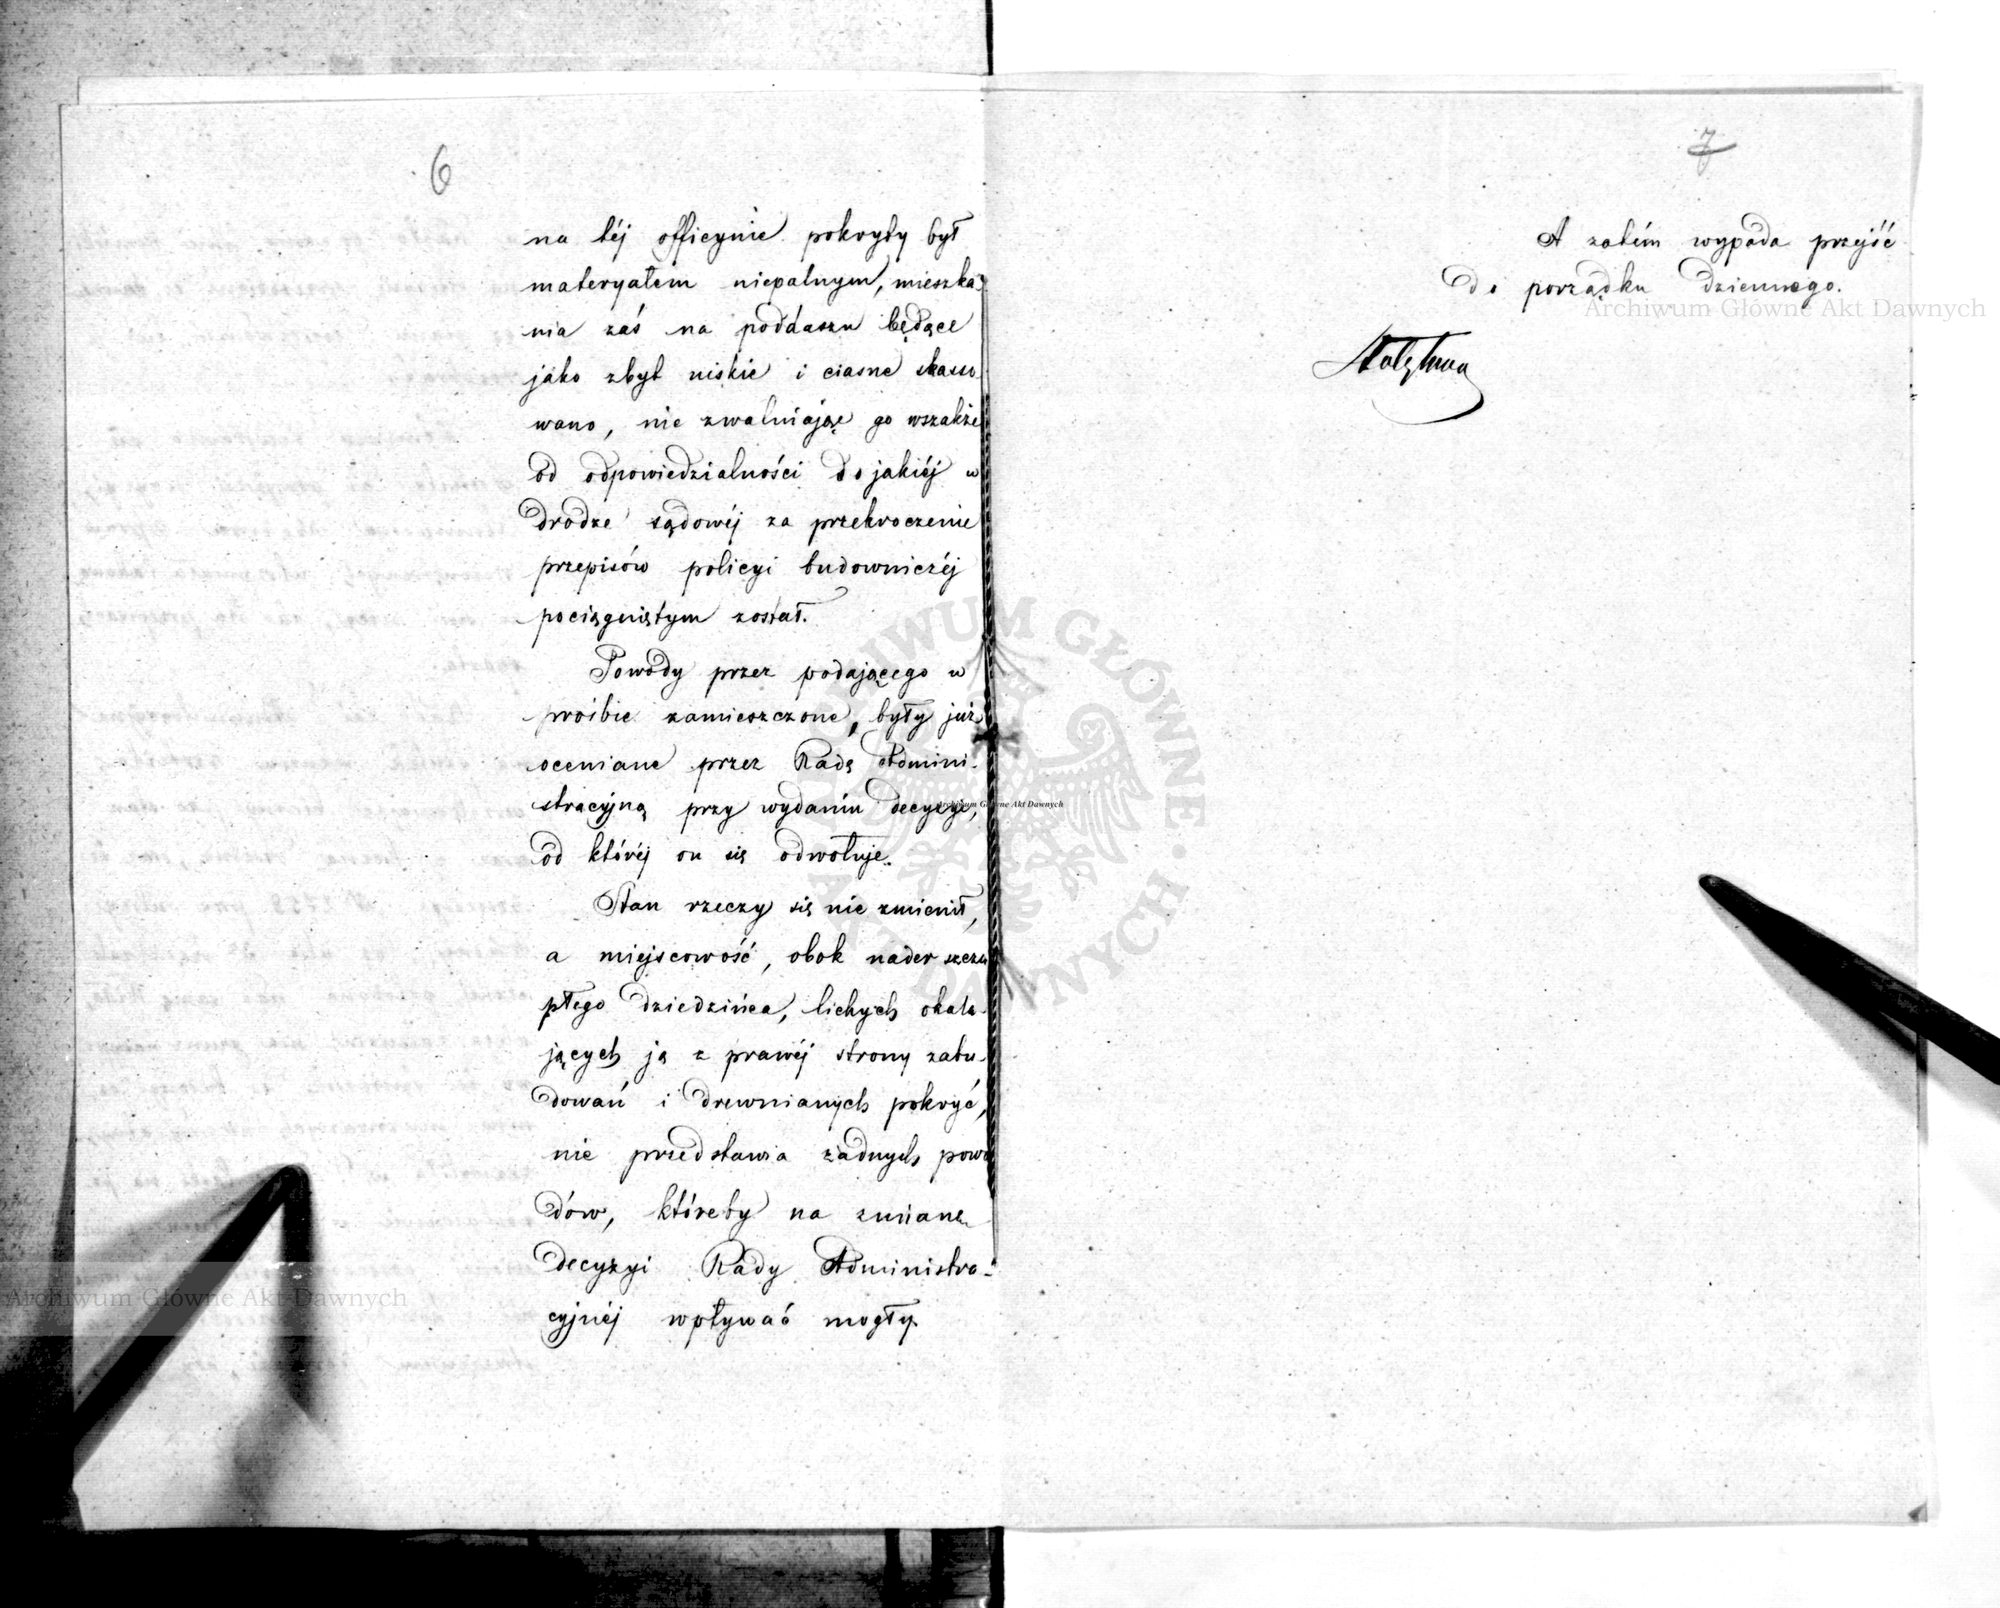 6
na téj officynie pokryty był
materyałem niepalnym, mieszka-
nia zaś na poddaszu będące
jako zbyt niskie i ciasne skasso-
wano, nie zwalniając go wszakże
od odpowiedzialności do jakiéj w
drodze sądowéj za przekroczenie
przepisów policyi budowniczéj
pociągniętym został.
Powody przez podającego w
prośbie zamieszczone, były już
oceniane przez Radę Admini-
stracyjną przy wydaniu decyzyi,
od któréj on się odwołuje.
Stan rzeczy się nie zmienił,
a miejscowość, obok nader szczu
płego dziedzińca, lichych okala-
jących ją z prawéj strony zabu-
dowań i drewnianych pokryć,
nie przedstawia żadnych powo
dów, któreby na zmianę
decyzyi Rady Administra-
cyjnéj wpływać mogły.
7
A zatém wypada przejść
do porządku dziennego.
Archiwum Główne Akt Dawnych
Archiwum Główne Akt Dawnych
Archiwum Główne Akt Dawnych
ARCHIWUM GŁÓWNE AKT DAWNYCH